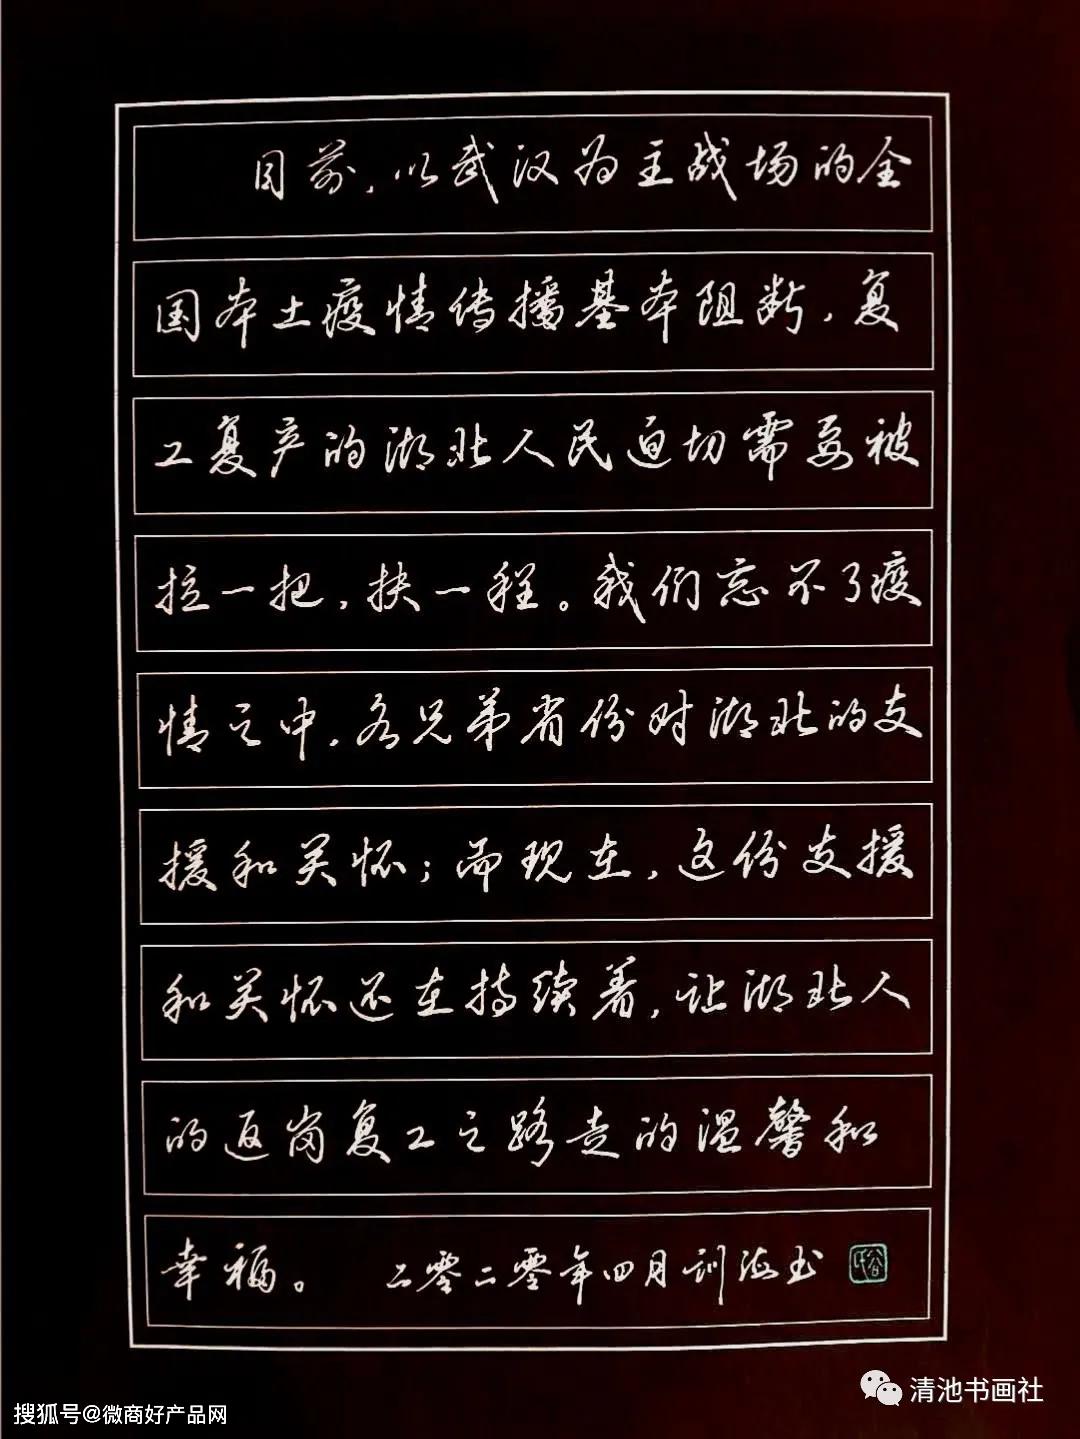 目前，以武汉为主战场的全
国本土疫情传播基本阻断，复
工复产的湖北人民迫切需要被
拉一把，扶一程。我们忘不了疫
情之中，各兄弟省份对湖北的支
援和关怀；而现在，这份支援
和关怀还在持续着，让湖北人
的返岗复工之路走的温馨和
幸福。 二零二零年四月训海书
清池书画社
搜狐号@微商好产品网